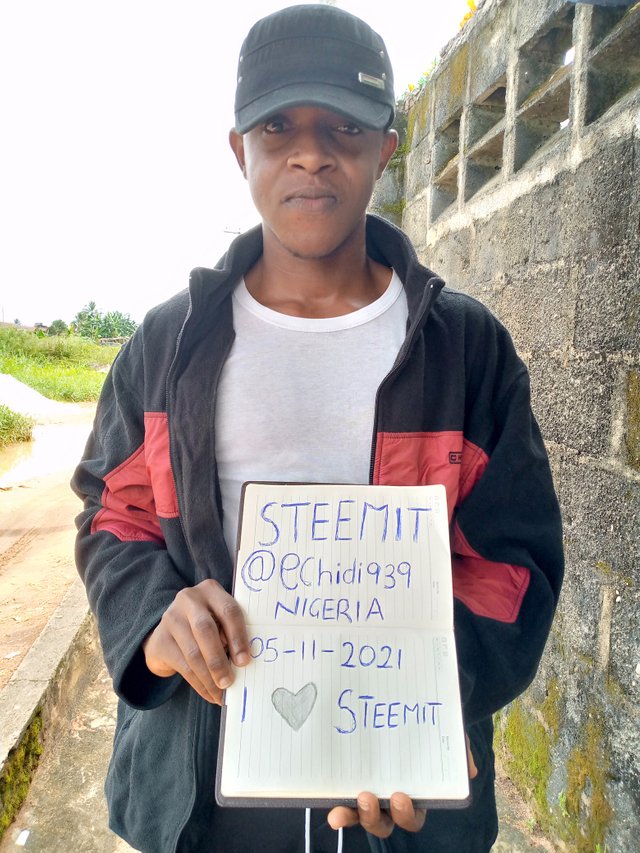 STEEMIT
@echidi939
NIGERIA
05-11-2021
I ♥ STEEMIT